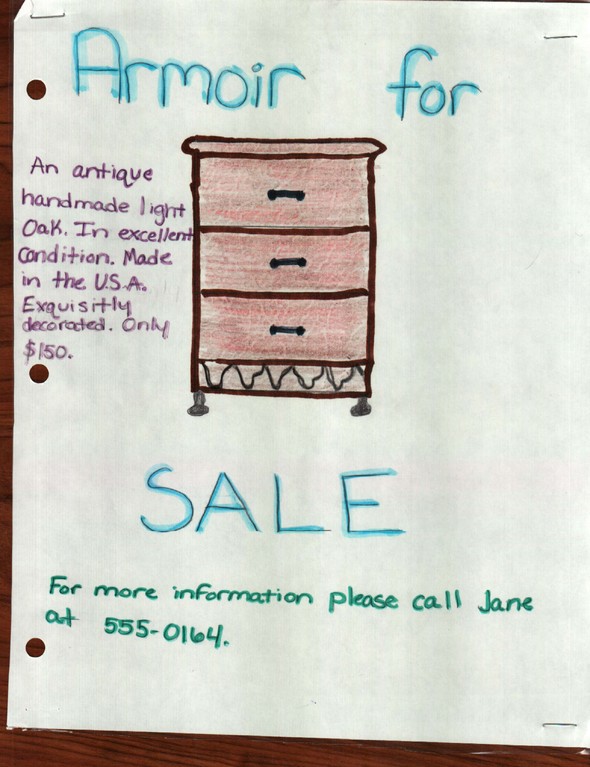 Armoir for
An antique
handmade light
Oak. In excellent
Condition. Made
in the U.S.A.
Exquisitly
decorated. Only
$150.
SALE
For more information please call Jane
at 555-0164.